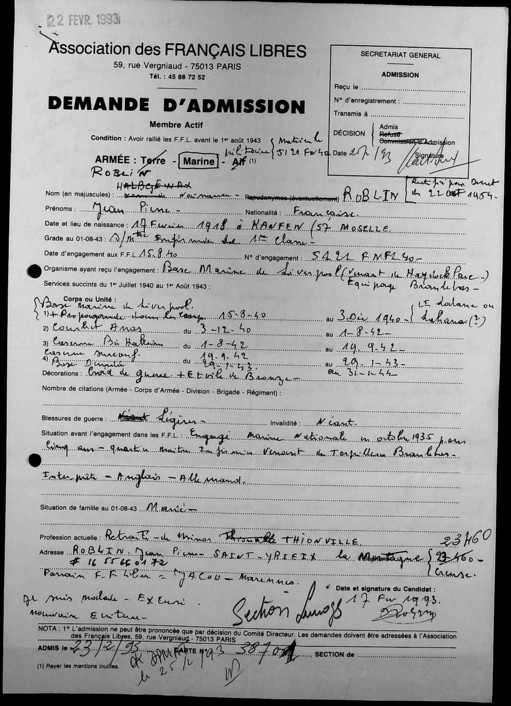 22 FEVR. 1993
Association des FRANÇAIS LIBRES
59, rue Vergniaud - 75013 PARIS
Tél. : 45 88 72 52
DEMANDE D'ADMISSION
Membre Actif
Condition : Avoir rallié les F.F.L. avant le 1er août 1943
Matricule
militaire 5121 FN 40
ARMÉE : Terre - Marine - Air (1)
SECRETARIAT GENERAL
ADMISSION
Reçu le
N° d'enregistrement :
Transmis à
DÉCISION
Admis
Refusé
Commission d'Admission
Date
Signature
ROBLIN
Nom (en majuscules) :
Pseudonymes (éventuellement)
ROBLIN
Rectifié par
du 22 1954.
Prénoms : Jean Pierre - Nationalité : Française
Date et lieu de naissance : 17 Février 1918 à KANFEN (57 MOSELLE
Grade au 01-08-43 : Infirmier de 1ère Classe -
Date d'engagement aux F.F.L 15.8.40 N° d'engagement : 5121 FNFL40-
Organisme ayant reçu l'engagement : Base Marine de Liverpool (Venant de Haydock Parc -)
Services succints du 1er Juillet 1940 au 1er Août 1943 : Equipage Branlebas -
Corps ou Unité :
Base Marine de Liverpool.
1) + Propagande dans les Camps 15-8-40 au 3 Déc 1940 -
2) Courbet 3-12-40 au 1-8-42 -
3) Caserne Bir Hakeim 1-8-42 au 19.9.42
Caserne Surcouf 19.9.42 au 29.1-43-
4) Base 29-1-43 au 31-1-44
Décorations : Croix de guerre + Etoile de Bronze -
Nombre de citations (Armée - Corps d'Armée - Division - Brigade - Régiment) :
Blessures de guerre : Néant Légères - Invalidité : Néant -
Situation avant l'engagement dans les F.F.L : Engagé Marine Nationale en octobre 1935 pour
cinq ans - quartier maitre Infirmier Venant du Torpilleur Branlebas -
Interprète - Anglais - Allemand.
Situation de famille au 01-08-43 Marié -
Profession actuelle : Retraité - de Mines THIONVILLE
23460
Adresse : ROBLIN. Jean Pierre - SAINT-YRIEIX la Montagne 23.460 -
Creuse -
# 16 55660172
Parrain F.F. Libre = JACOU - Marennes -
Date et signature du Candidat :
17 Fév 1993.
Je suis malade - Excusé
mauvaise Ecriture -
Section Limoges
NOTA : 1° L'admission ne peut être prononcée que par décision du Comité Directeur. Les demandes doivent être adressées à l'Association
des Français Libres, 59, rue Vergniaud - 75013 PARIS
ADMIS le 23/2/93 CARTE N° 38701 SECTION DE
le 25/2/93
(1) Rayer les mentions inutiles.